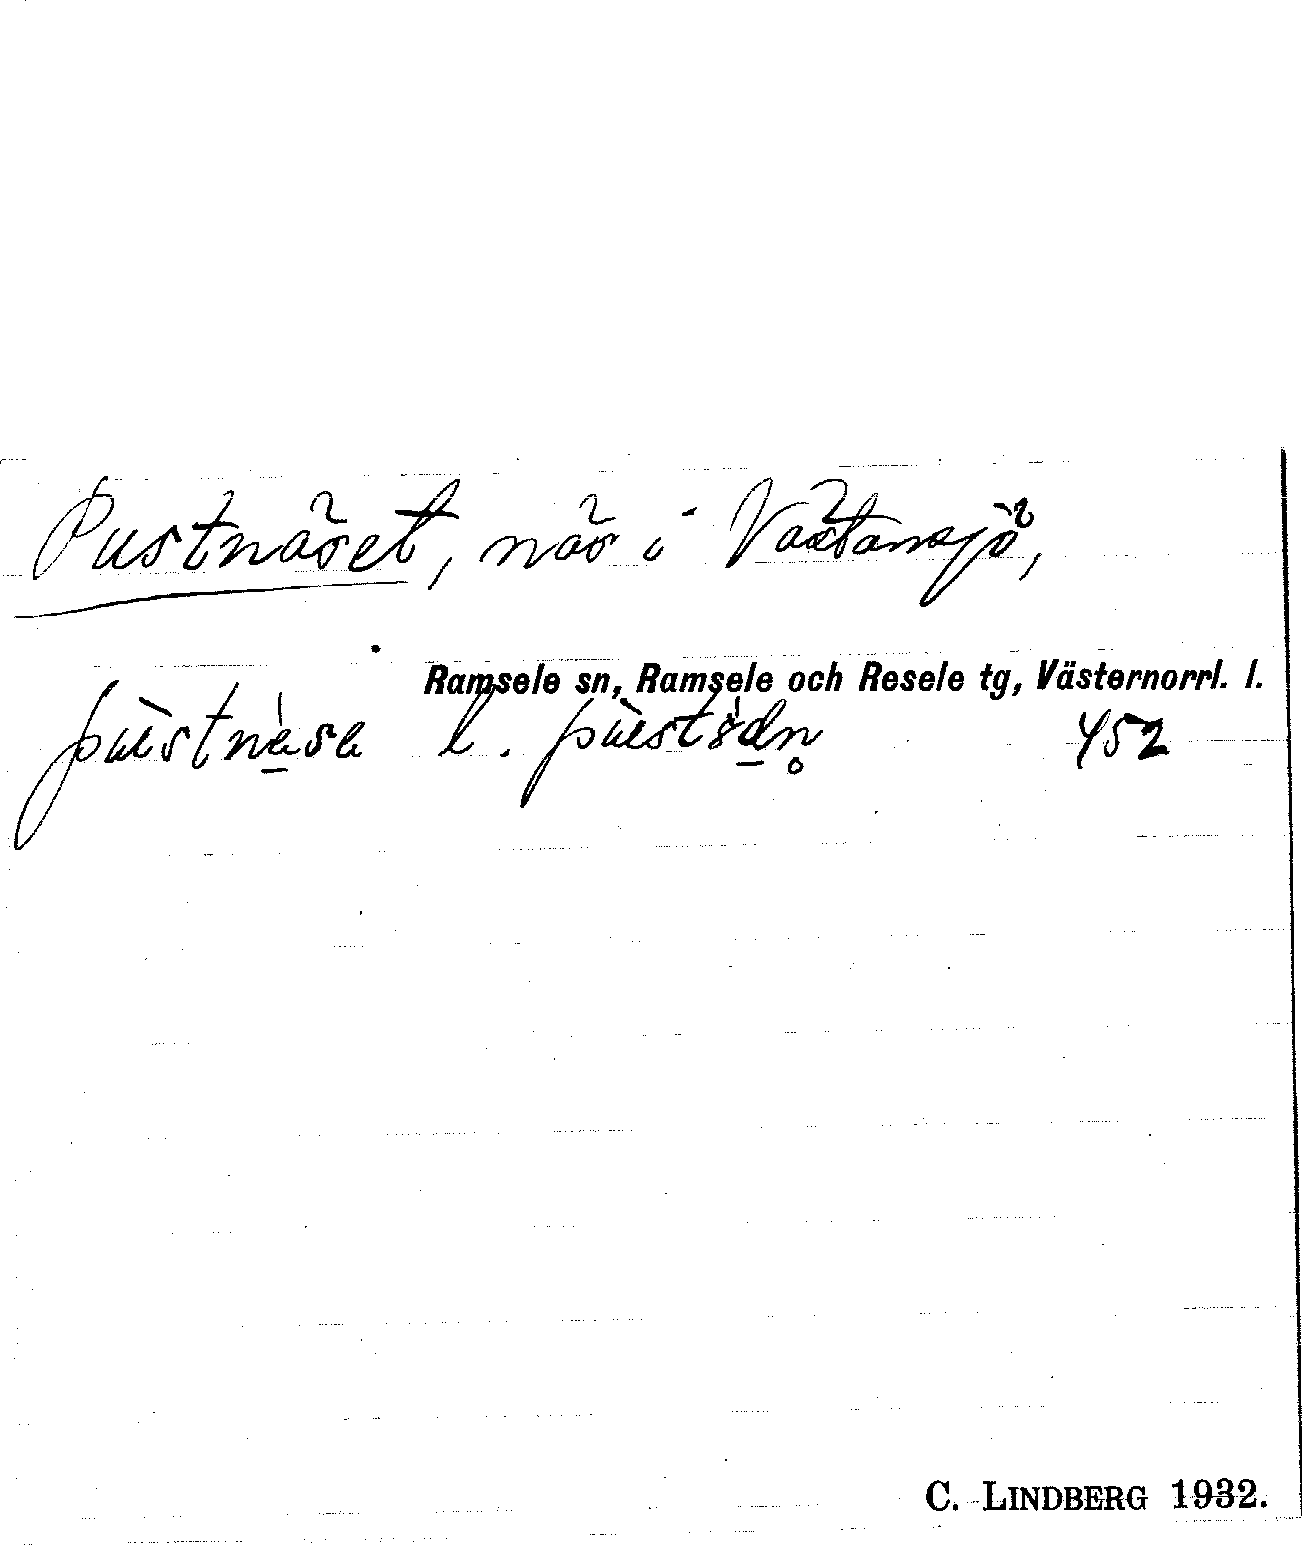 Pustnäset, näs i Västansjö,
Ramsele sn, Ramsele och Resele tg, Västernorrl. l.
452
C. LINDBERG 1932.